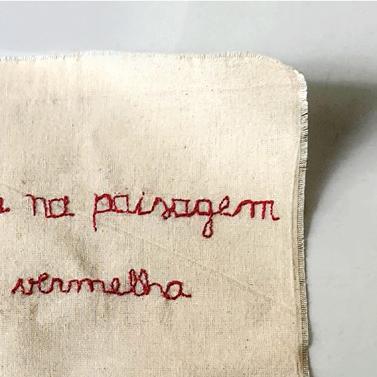 na paisagem
vermelha